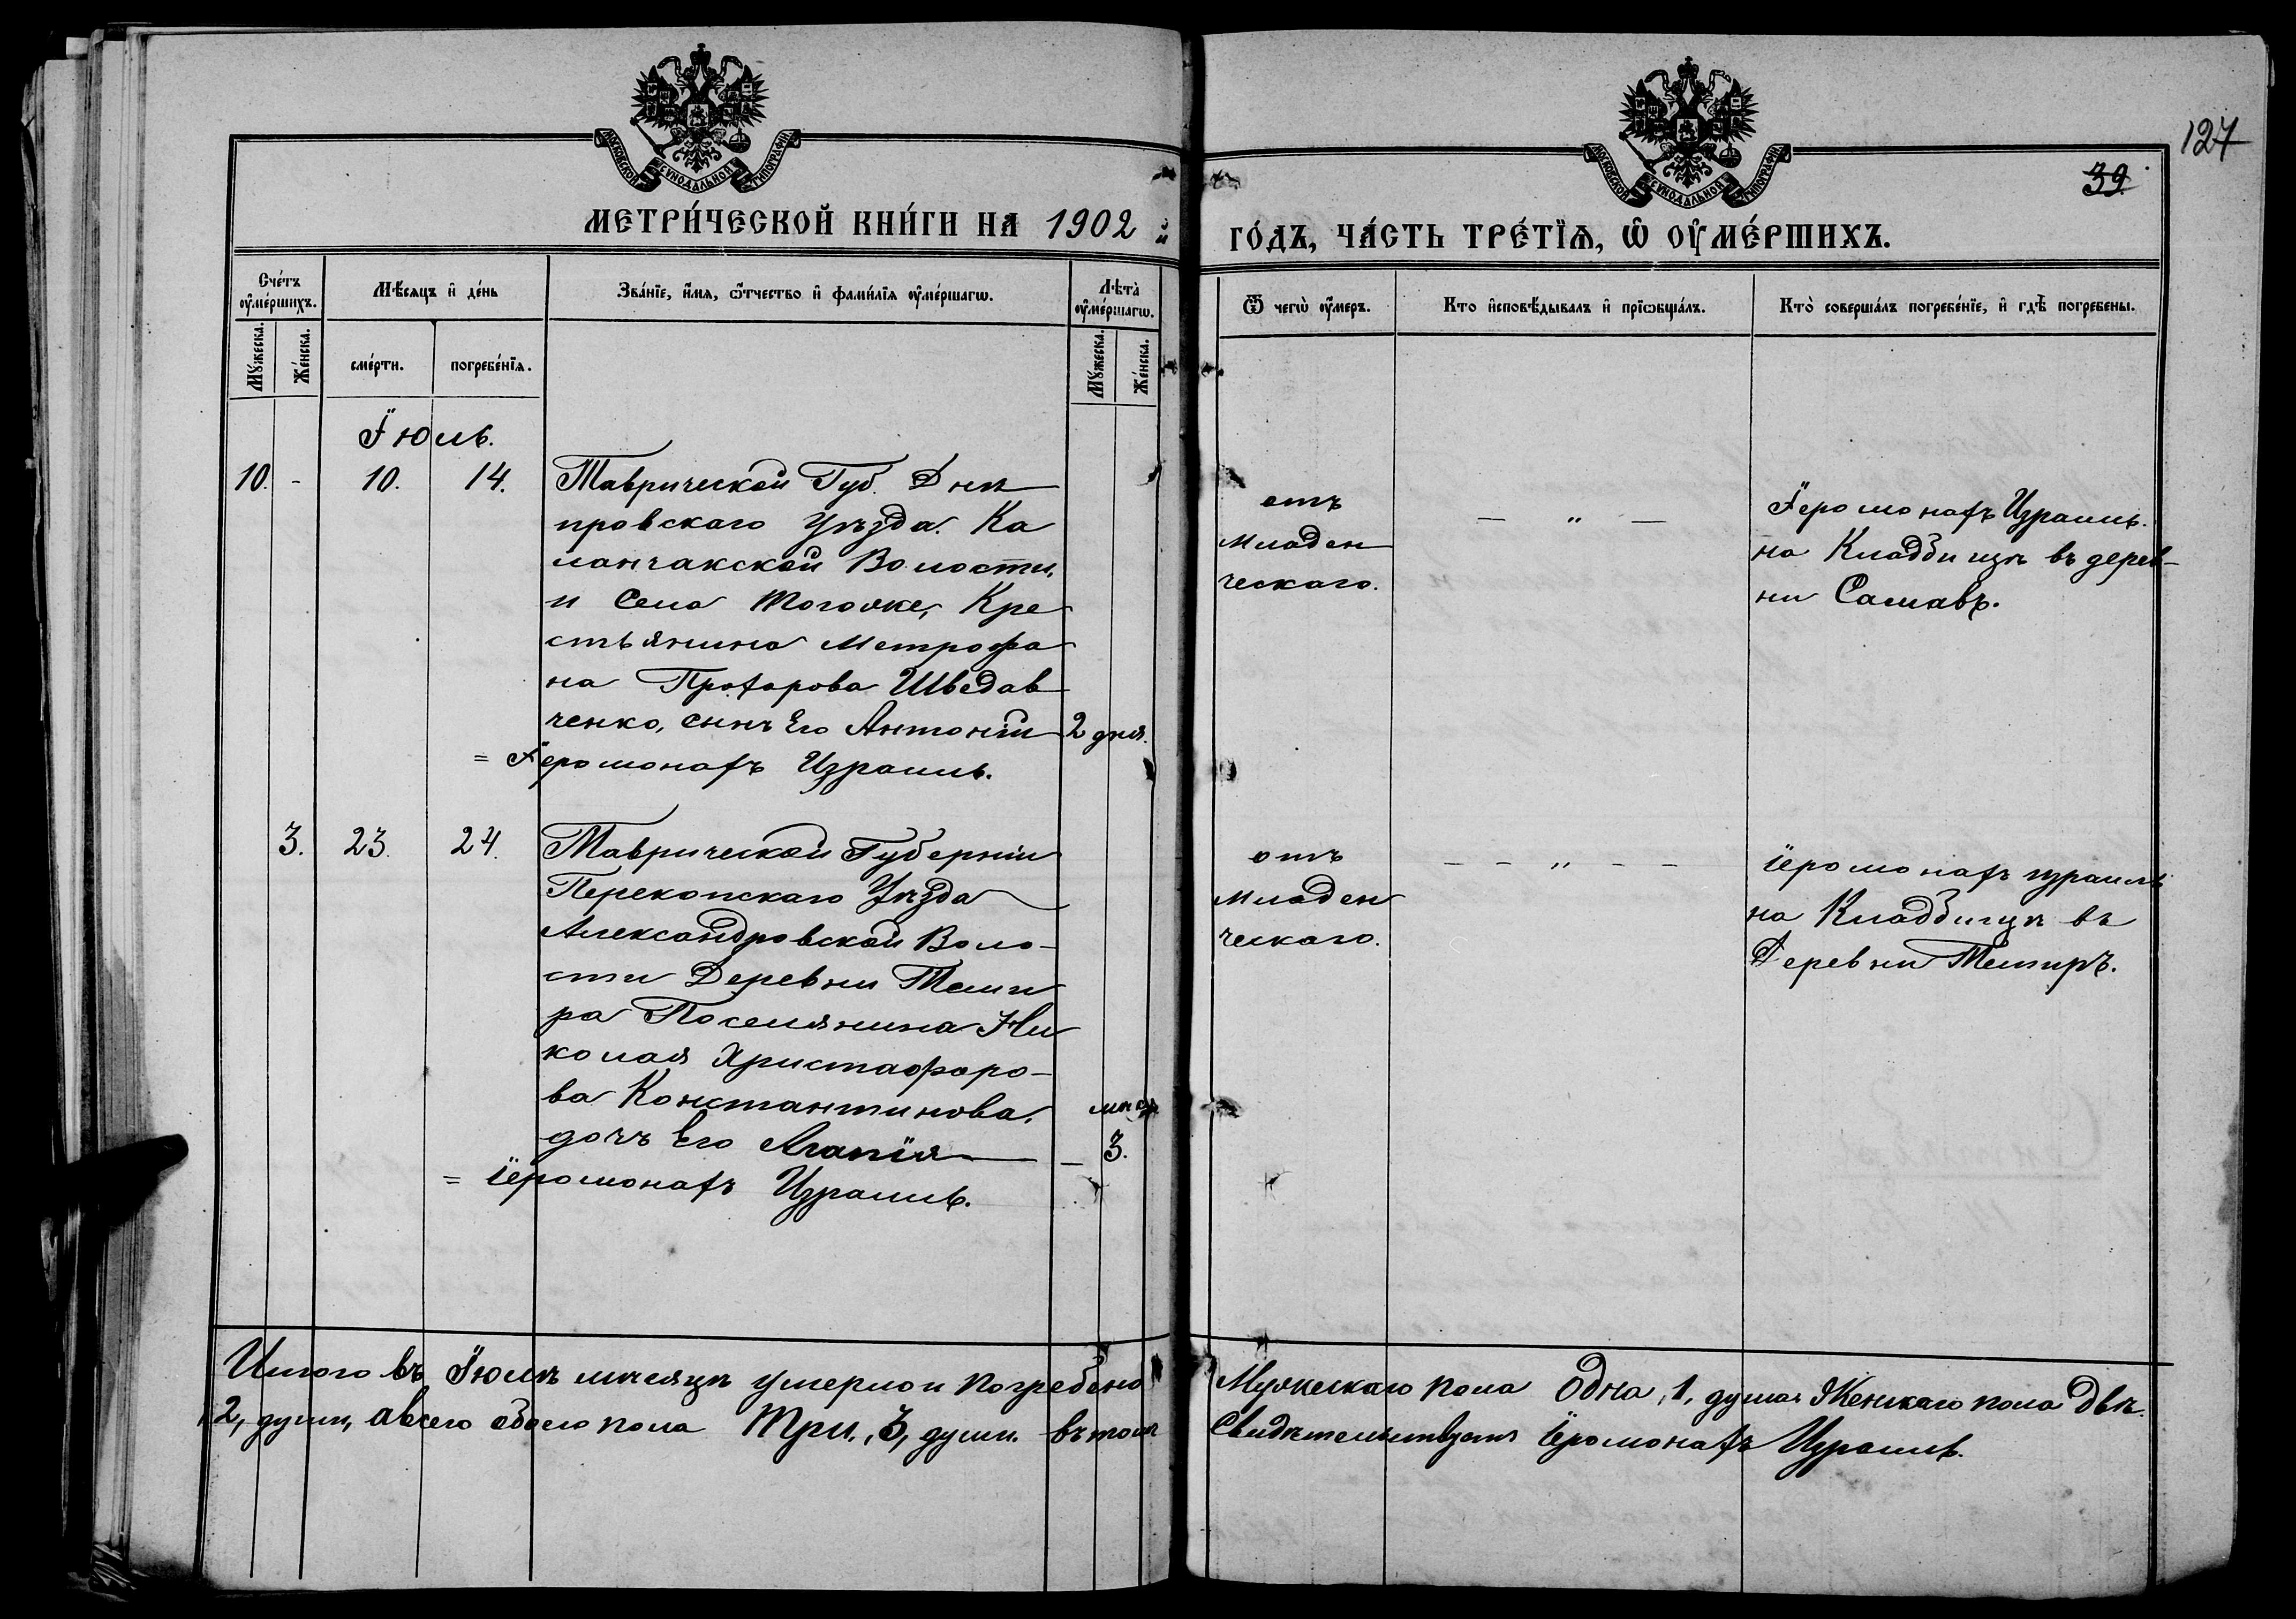 127
39
МОСКОВСКОЙ СѴНОДАЛЬНОЙ ТИПОГРАФІИ
МОСКОВСКОЙ СѴНОДАЛЬНОЙ ТИПОГРАФІИ
МЕТРИ́ЧЕСКОЙ КНИ́ГИ НА 1902 й
ГО́ДЪ, ЧА́СТЬ ТРЕ́ТЇѦ, Ѡ҆ ОУ҆МЕ́РШИХЪ.
Сче́тъ оу҆ме́ршихъ.
Мꙋ́жеска.
Же́нска.
Мѣ́сяцъ и҆ де́нь
сме́рти.
погребе́нїѧ.
Зва́нїе, и҆́мѧ, ѻ҆́тчество и҆ фами́лїѧ оу҆ме́ршагѡ.
Лѣ́та̀ оу҆ме́ршагѡ.
Мꙋ́жеска.
Же́нска.
Ѿ чегѡ̀ оу҆́меръ.
Кто и҆сповѣ́дывалъ и҆ прїѡбща́лъ.
Кто̀ соверша́лъ погребе́нїе, и҆ гдѣ̀ погребены.
Їюль.
10. - 10. 14.
Таврической Губ. Днѣ
провскаго Уѣзда. Ка
ланчакской Волости,
и Села Тогоже, Кре
стьянина Метрофа
на Прохорова Шведав
ченко, сынъ Его Антоній 2 дня.
= Їеромонахъ Израиль.
отъ
младен
ческаго.
— " —
Їеромонахъ Израиль.
на Кладбищѣ въ дерев-
ни Самавъ.
3. 23. 24.
Таврической Губерніи
Перекопскаго Уѣзда
Александровской Воло-
сти Деревни Теми
ра Поселянина Ни
колая Христафоро-
ва Константинова.
дочь Его Агапія — 3.
= Їеромонахъ Израиль.
отъ
младен
ческаго.
— — " — —
їеромонахъ израиль
на Кладбищѣ въ
Деревни Темиръ.
Итого въ Їюлѣ мѣсяцѣ умерло и погребено Мужескаго пола Одна, 1, душа Женскаго пола Двѣ.
2, души, а всего обоего пола Три, 3, души. въ томъ Свидѣтельствуетъ Їеромонахъ Израиль.